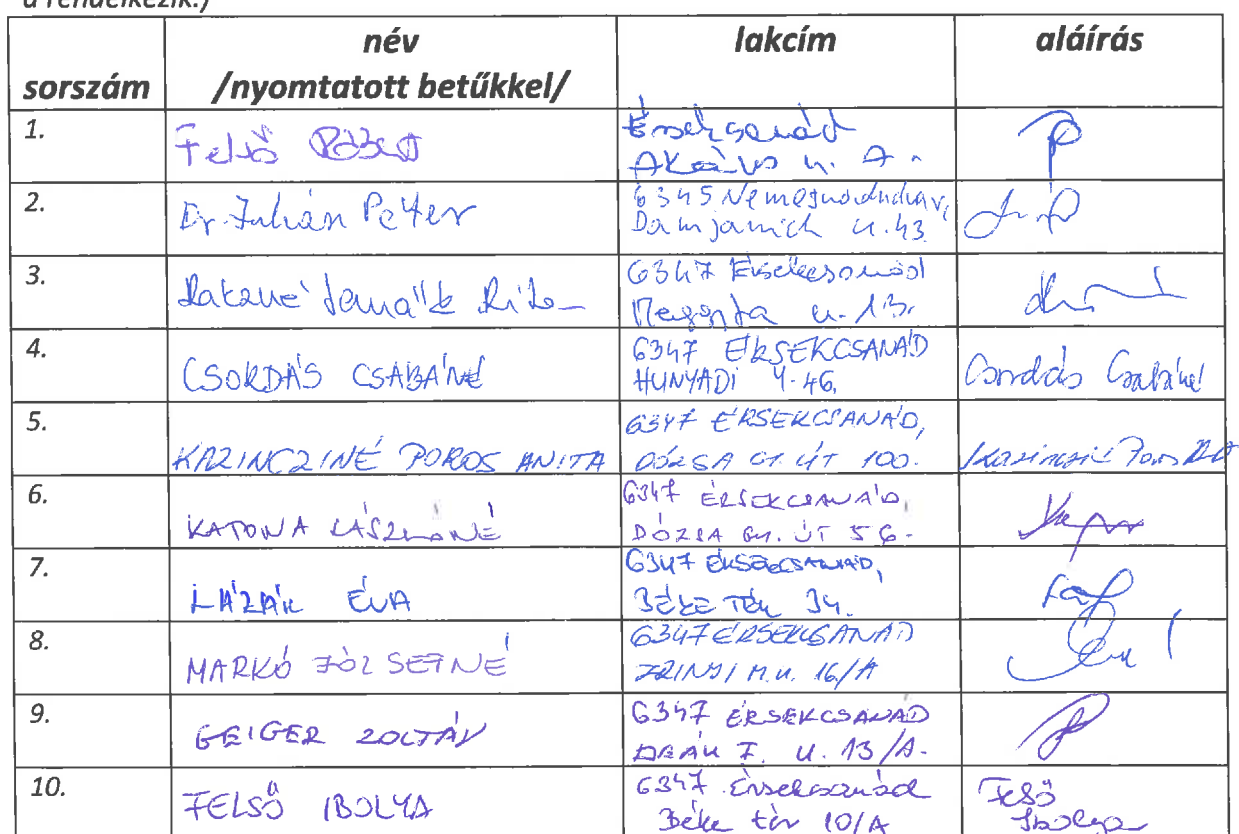 a rendelkezik.)
sorszám név /nyomtatott betűkkel/ lakcím aláírás
1. Felső Róbert Érsekcsanád
u.
2. Dr. Julián Péter 6345 Nemesnádudvar,
Damjanich u. 43.
3. Rita 6347 Érsekcsanád
u. 13.
4. CSORDÁS CSABÁNÉ 6347 ÉRSEKCSANÁD
HUNYADI u. 46. Csordás Csabáné
5. KAZINCZINÉ POROS ANITA 6347 ÉRSEKCSANÁD,
DÓZSA GY. ÚT 100. Kazincziné Poros
6. KATONA LÁSZLÓNÉ 6347 ÉRSEKCSANÁD,
DÓZSA GY. ÚT 56.
7. LÁZÁR ÉVA 6347 ÉRSEKCSANÁD,
BÉKE TÉR 34.
8. MARKÓ JÓZSEFNÉ 6347 ÉRSEKCSANÁD
ZRINYI M. U. 16/A
9. GEIGER ZOLTÁN 6347 ÉRSEKCSANÁD
DEÁK F. U. 13/A.
10. FELSŐ IBOLYA 6347 Érsekcsanád Felső
Béke tér 10/A Ibolya